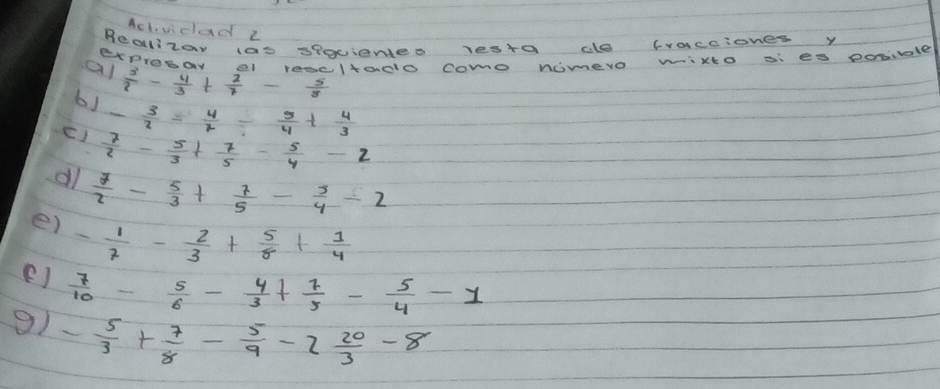 Actividad 2
Realizar las siguientes resta de fracciones y
expresar el rescltado como número mixto si es posible
a) 3/2 - 4/3 + 2/7 - 5/3
b) - 3/2 - 4/7 - 5/4 + 4/3
c) 7/2 - 5/3 + 7/5 - 5/4 - 2
d) 7/2 - 5/3 + 7/5 - 3/4 - 2
e) - 1/7 - 2/3 + 5/8 + 1/4
f) 7/10 - 5/6 - 4/3 + 7/5 - 5/4 - 1
g) - 5/3 + 7/8 - 5/9 - 2 20/3 - 8